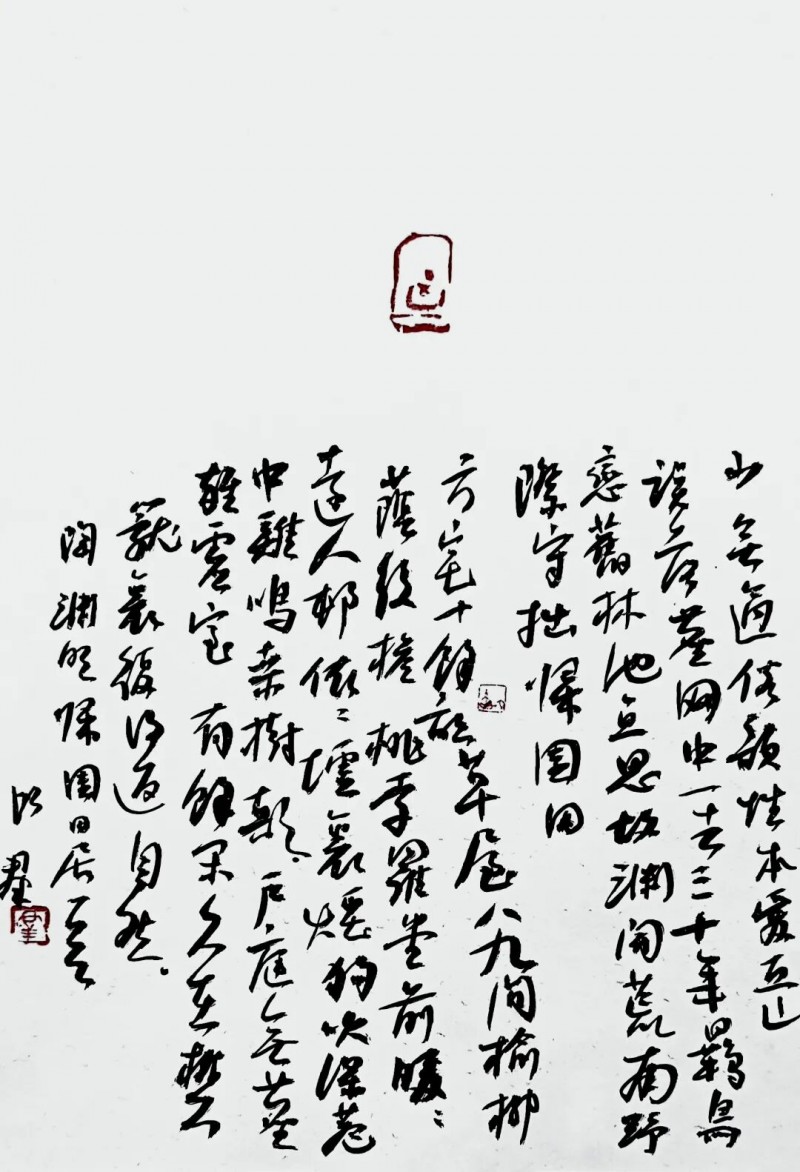 少無適俗韻性本愛丘山
誤落塵網中一去三十年羈鳥
戀舊林池魚思故淵開荒南野
際守拙歸園田
方宅十餘畝草屋八九間榆柳
蔭後檐桃李羅堂前曖〻
遠人邨依〻墟裏煙狗吠深巷
中雞鳴桑樹顛戶庭無塵
雜虛室有餘閑久在樊
籠裏復得返自然
陶淵明歸園田居